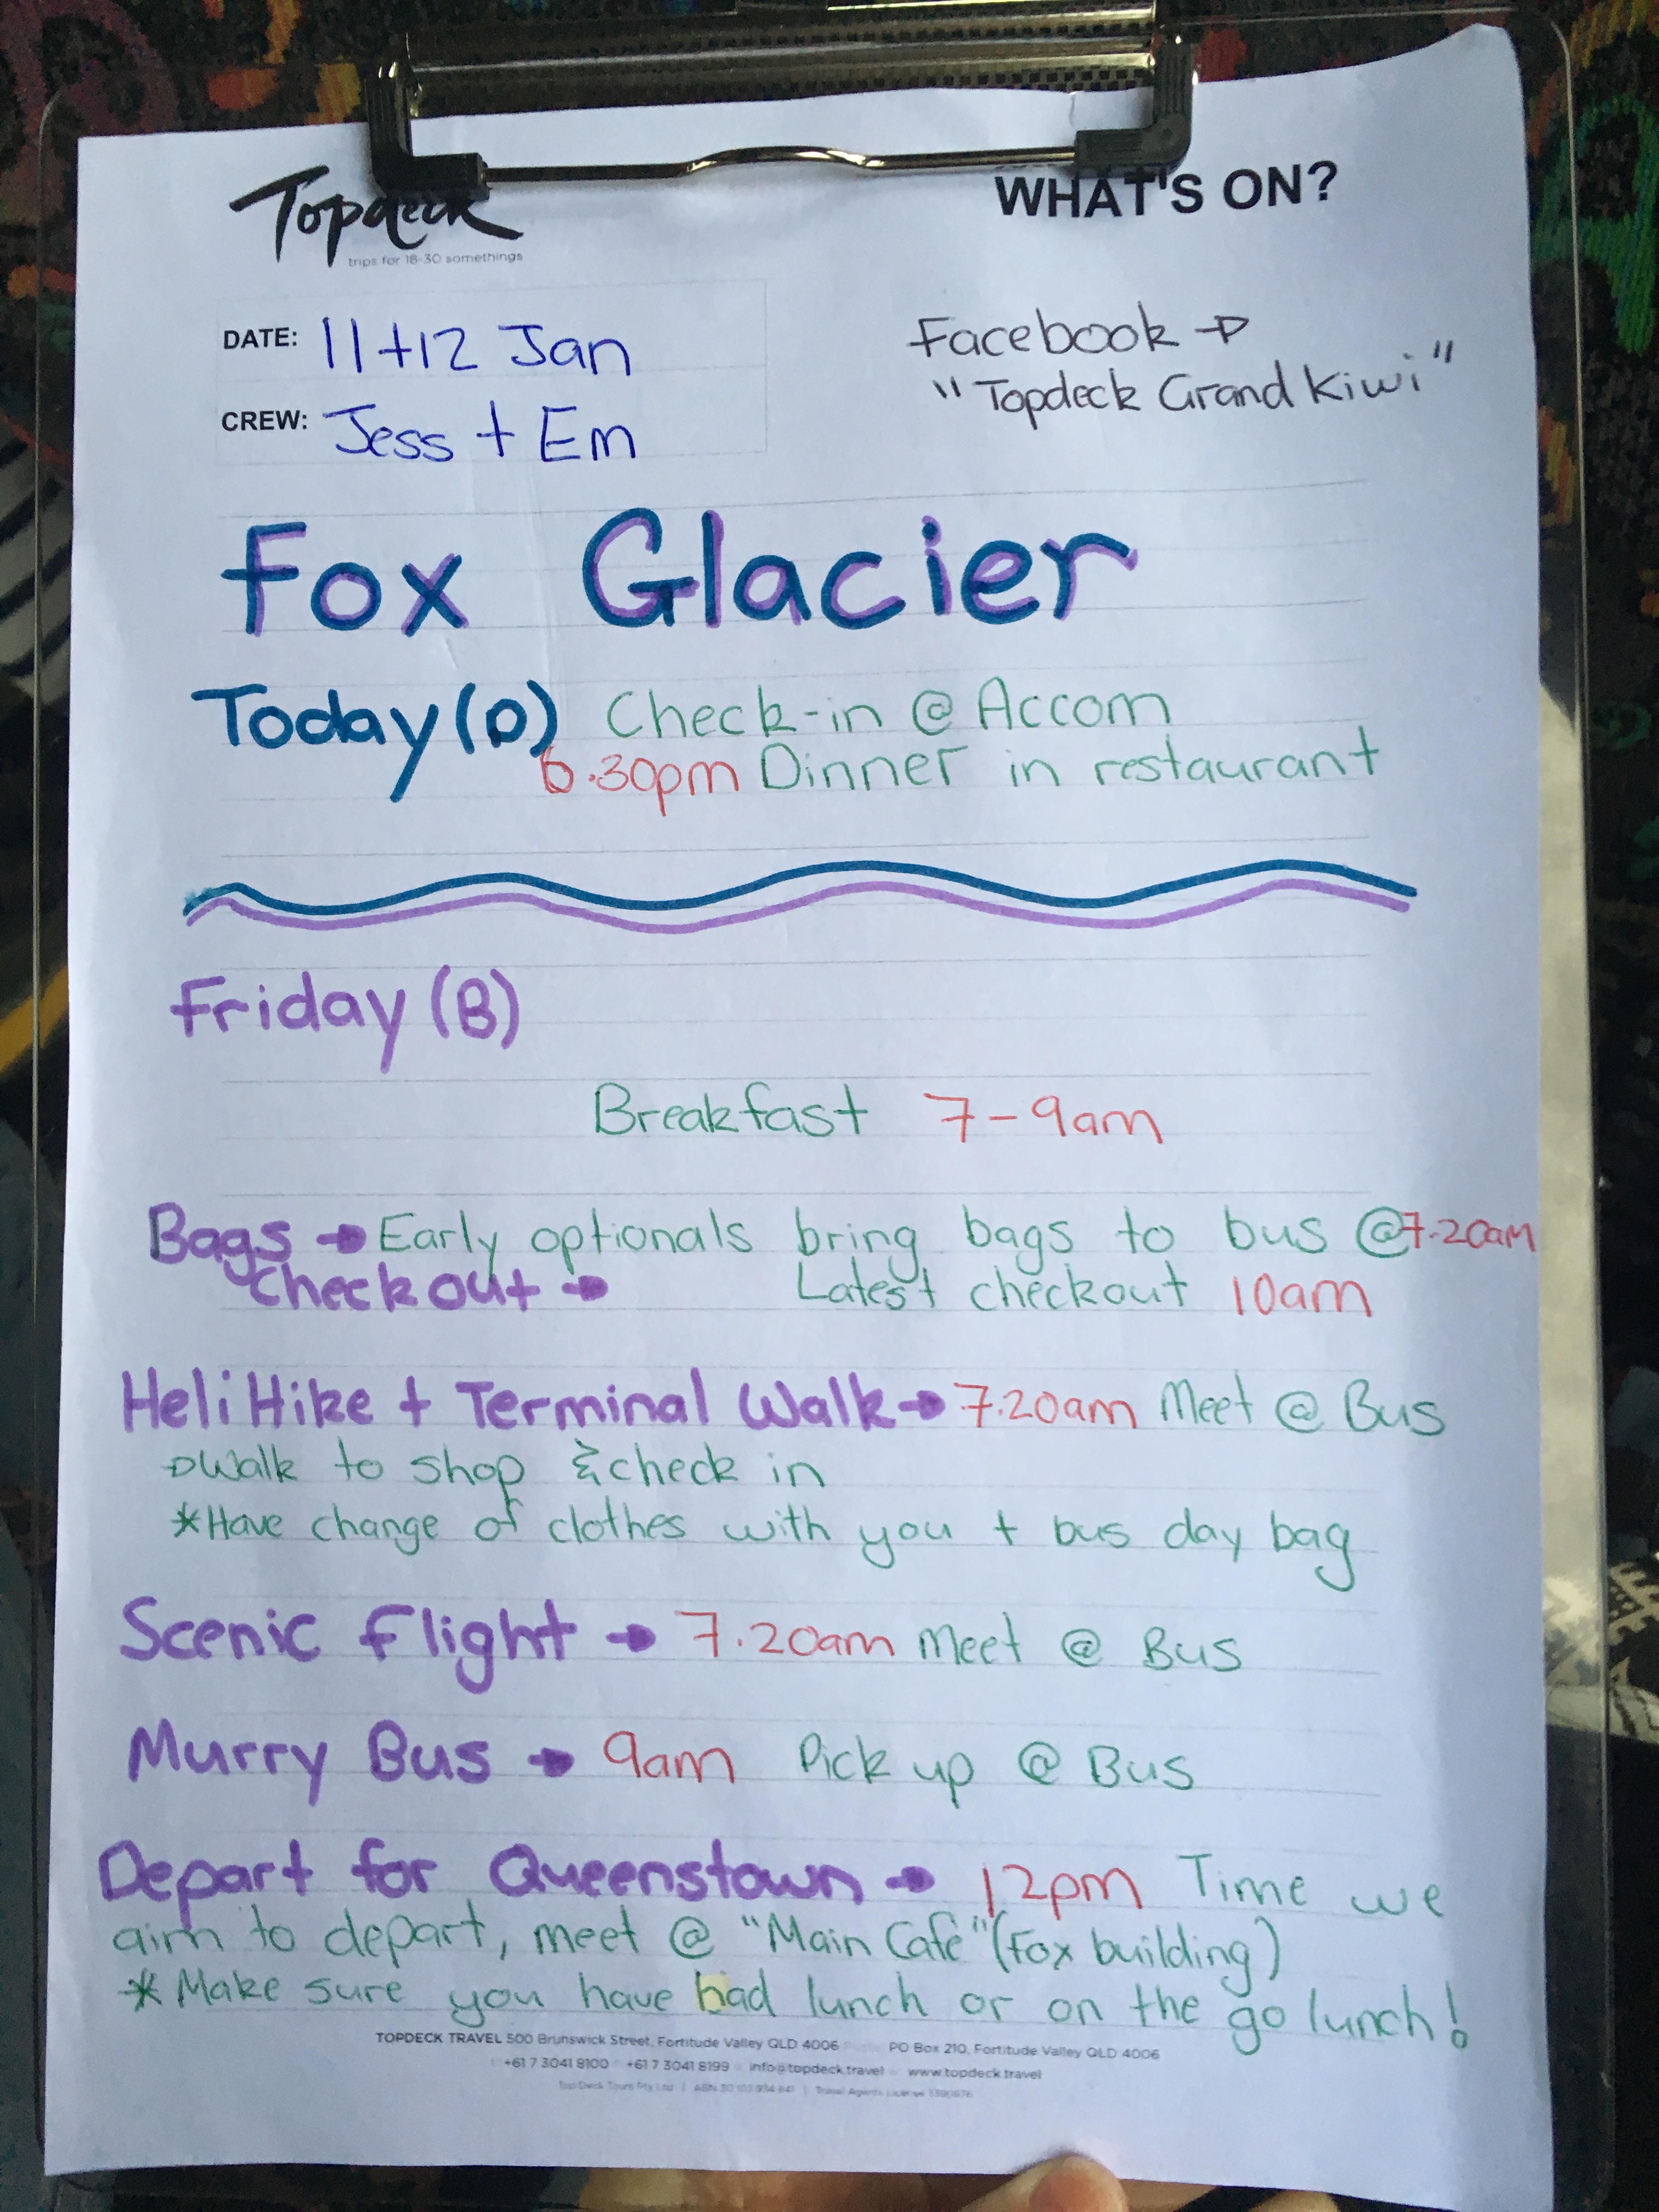 Topdeck
trips for 18-30 somethings
WHAT'S ON?
DATE: 11+12 Jan
CREW: Jess + Em
Facebook →
"Topdeck Grand Kiwi"
Fox Glacier
Today (D) Check-in @ Accom
6.30pm Dinner in restaurant
Friday (B)
Breakfast 7-9am
Bags → Early optionals bring bags to bus @ 7.20am
Checkout → Latest checkout 10am
Heli Hike + Terminal Walk → 7.20am Meet @ Bus
→ Walk to shop & check in
* Have change of clothes with you + bus day bag
Scenic Flight → 7.20am Meet @ Bus
Murry Bus → 9am Pick up @ Bus
Depart for Queenstown → 12pm Time we
aim to depart, meet @ "Main Café" (Fox building)
* Make sure you have had lunch or on the go lunch!
TOPDECK TRAVEL 500 Brunswick Street, Fortitude Valley QLD 4006 PO Box 210, Fortitude Valley QLD 4006
+61 7 3041 8100 +61 7 3041 8199 info@topdeck.travel www.topdeck.travel
Top Deck Tours Pty Ltd | ABN | Travel Agents License